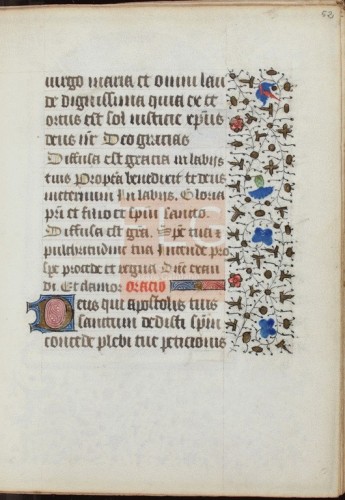 62
uirgo maria et omni lau
de dignissima quia ex te
ortus est sol iusticie xp̄us
deus nr̄. Deo gracias
Diffusa est gracia in labijs
tuis Propt̄ea benedixit te deus
in eternum In labijs. Gloria
pr̄i et filio et spūi sancto.
Diffusa est grā. Spē tua et
pulchritudine tua Intende pro
spe procede et regna Dn̄e exau
di Et clamor oracio
Deus qui apostolis tuis
sanctum dedisti spm̄
concede plebi tue peticionis